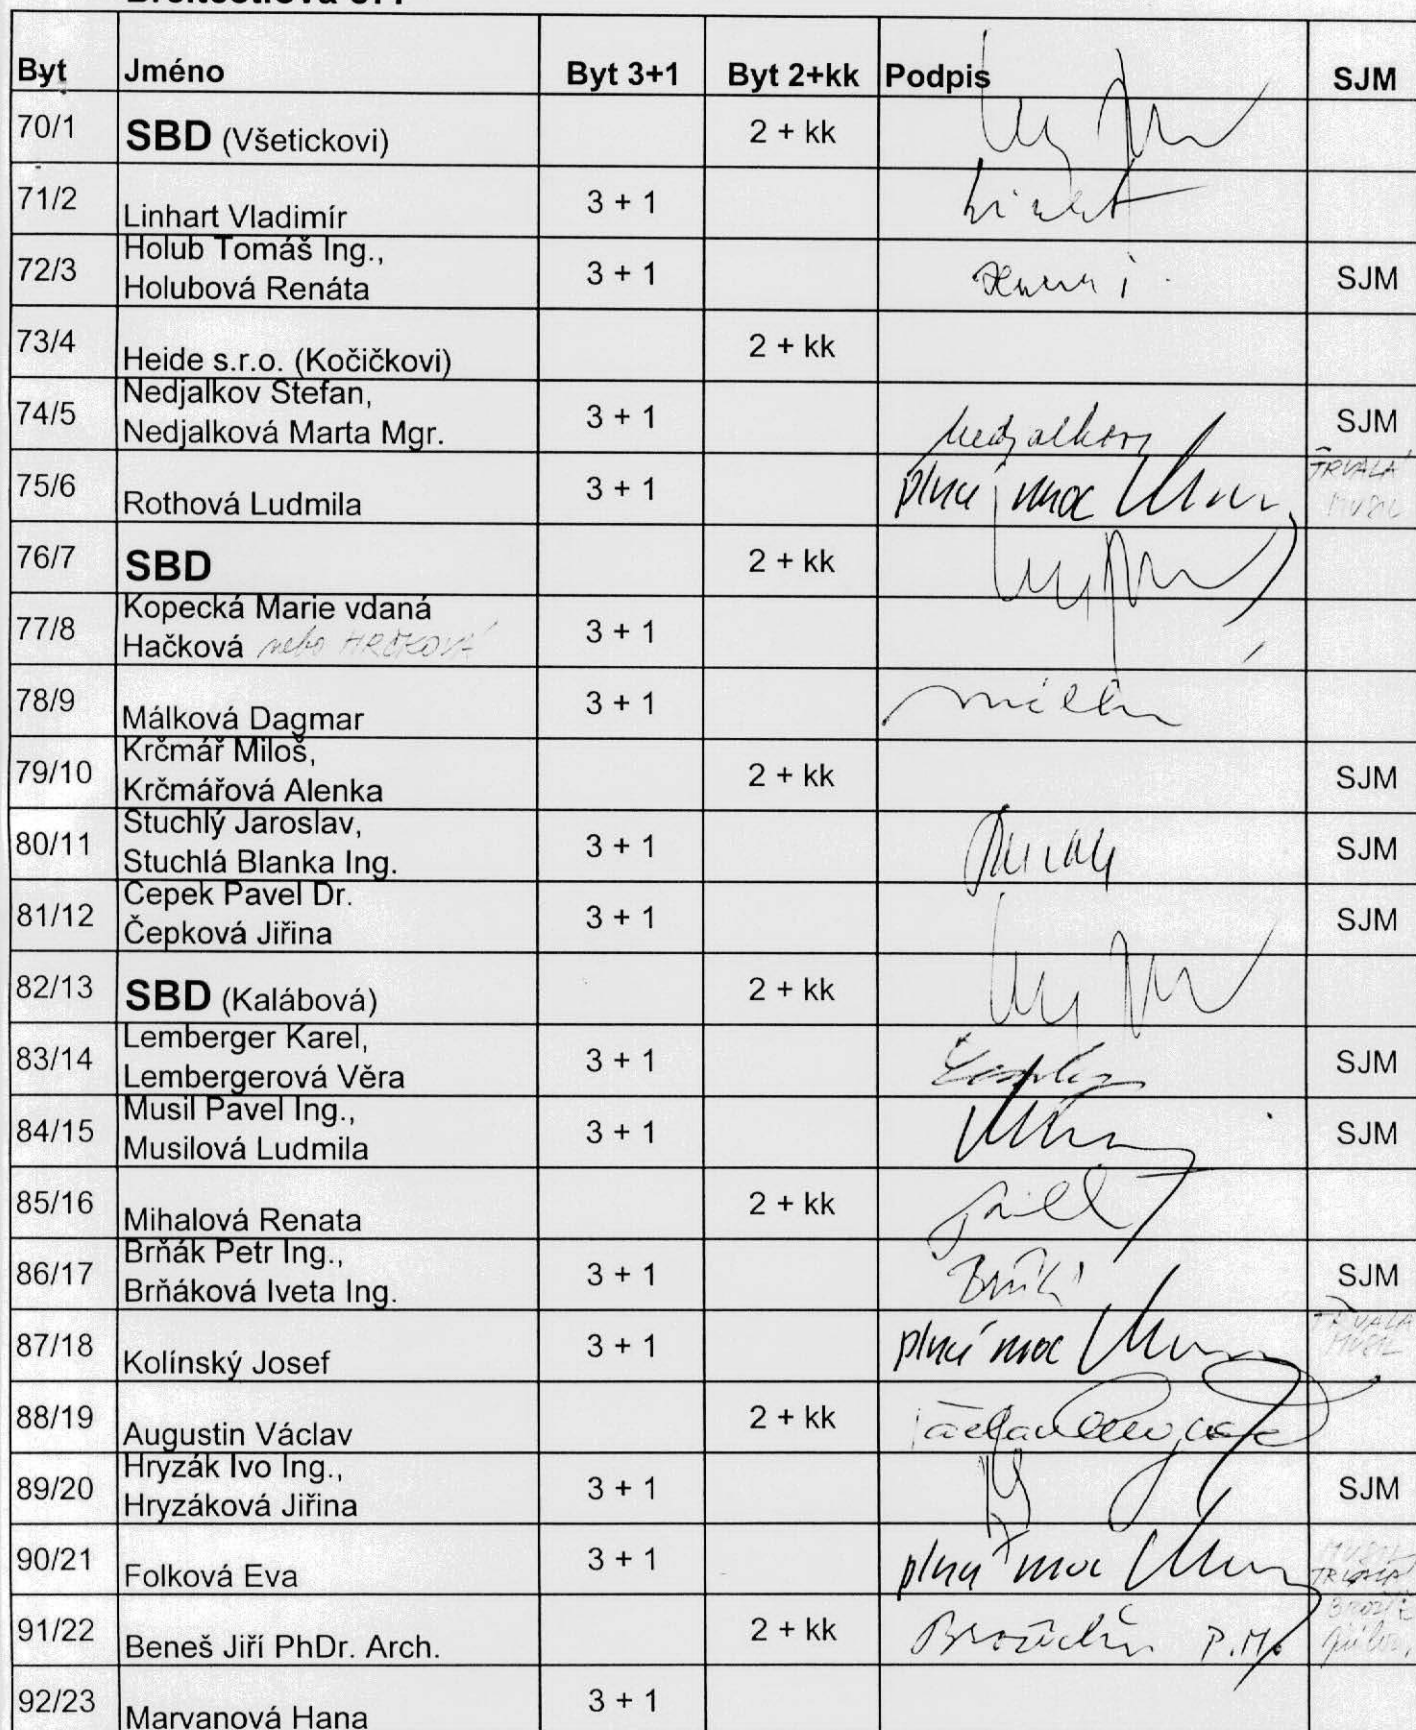 Byt Jméno Byt 3+1 Byt 2+kk Podpis SJM
70/1 SBD (Všetickovi) 2 + kk
71/2 Linhart Vladimír 3 + 1
72/3 Holub Tomáš Ing.,
Holubová Renáta 3 + 1 SJM
73/4 Heide s.r.o. (Kočičkovi) 2 + kk
74/5 Nedjalkov Stefan,
Nedjalková Marta Mgr. 3 + 1 SJM
75/6 Rothová Ludmila 3 + 1 plná moc TRVALÁ
MUSIL
76/7 SBD 2 + kk
77/8 Kopecká Marie vdaná
Hačková nebo HRČKOVÁ 3 + 1
78/9 Málková Dagmar 3 + 1
79/10 Krčmář Miloš,
Krčmářová Alenka 2 + kk SJM
80/11 Stuchlý Jaroslav,
Stuchlá Blanka Ing. 3 + 1 SJM
81/12 Čepek Pavel Dr.
Čepková Jiřina 3 + 1 SJM
82/13 SBD (Kalábová) 2 + kk
83/14 Lemberger Karel,
Lembergerová Věra 3 + 1 SJM
84/15 Musil Pavel Ing.,
Musilová Ludmila 3 + 1 SJM
85/16 Mihalová Renata 2 + kk
86/17 Brňák Petr Ing.,
Brňáková Iveta Ing. 3 + 1 SJM
87/18 Kolínský Josef 3 + 1 plná moc TRVALÁ
MUSIL
88/19 Augustin Václav 2 + kk
89/20 Hryzák Ivo Ing.,
Hryzáková Jiřina 3 + 1 SJM
90/21 Folková Eva 3 + 1 plná moc MUSIL
TRVALÁ
91/22 Beneš Jiří PhDr. Arch. 2 + kk P.M.
92/23 Marvanová Hana 3 + 1